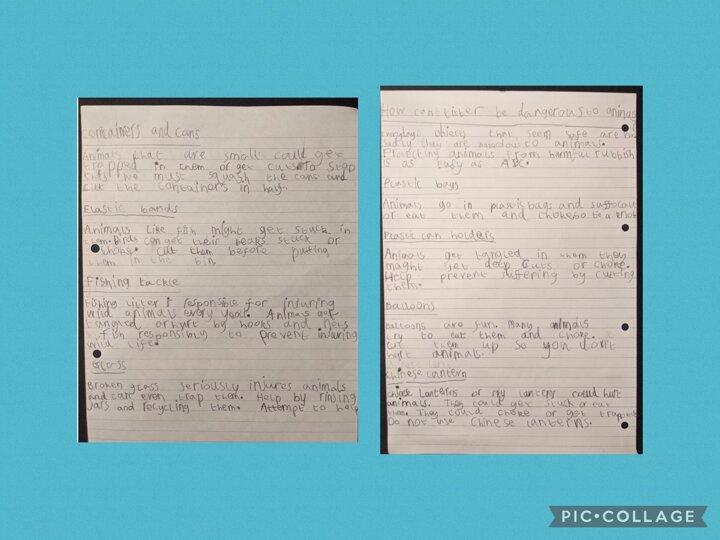 containers and cans
Animals that are small could get
trapped in them or get cuts. To stop
this we must squash the cans and
cut the containers in half.
Elastic bands
Animals like fish might get stuck in
them. Birds can get their beaks stuck or
choke. Cut them before putting
them in the bin.
Fishing tackle
Fishing litter i responsible for injuring
wild animals every year. Animals get
tangled or hurt by hooks and nets.
fish responsibly to prevent injuring
wild life.
Glass
Broken glass seriously injures animals
and can even trap them. Help by rinsing
Jars and recycling them. Attempt to help
How can litter be dangerous to animas
Everyday objects that seem safe are not
sadly they are hazardous to animals.
Protecting animals from harmful rubbish
is as easy as ABC.
Plastic bags
Animals go in plastic bags and suffocate
or eat them and choke so tie a knot
Plastic can holders
Animals get tangled in them they
might get deep cuts or choke.
Help prevent suffering by cutting
them.
Balloons
Balloons are fun. Many animals
try to eat them and choke.
cut them up so you don't
hurt animals.
Chinese lantern
Chinese Lanterns or sky lanterns could hurt
animals. They could get stuck or eat
them. They could choke or get trapped
Do not use Chinese lanterns.
PIC•COLLAGE